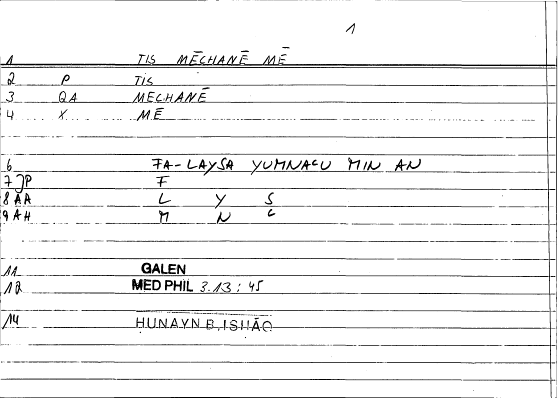 1
1 TIS MĒCHANĒ MĒ
2 P TIS
3 QA MECHANĒ
4 X MĒ
6 FA-LAYSA YUMNAʿU MIN AN
7 JP F
8 AA L Y S
9 AH M N ʿ
11 GALEN
12 MED PHIL 3.13 : 45
14 HUNAYN B. ISHĀQ